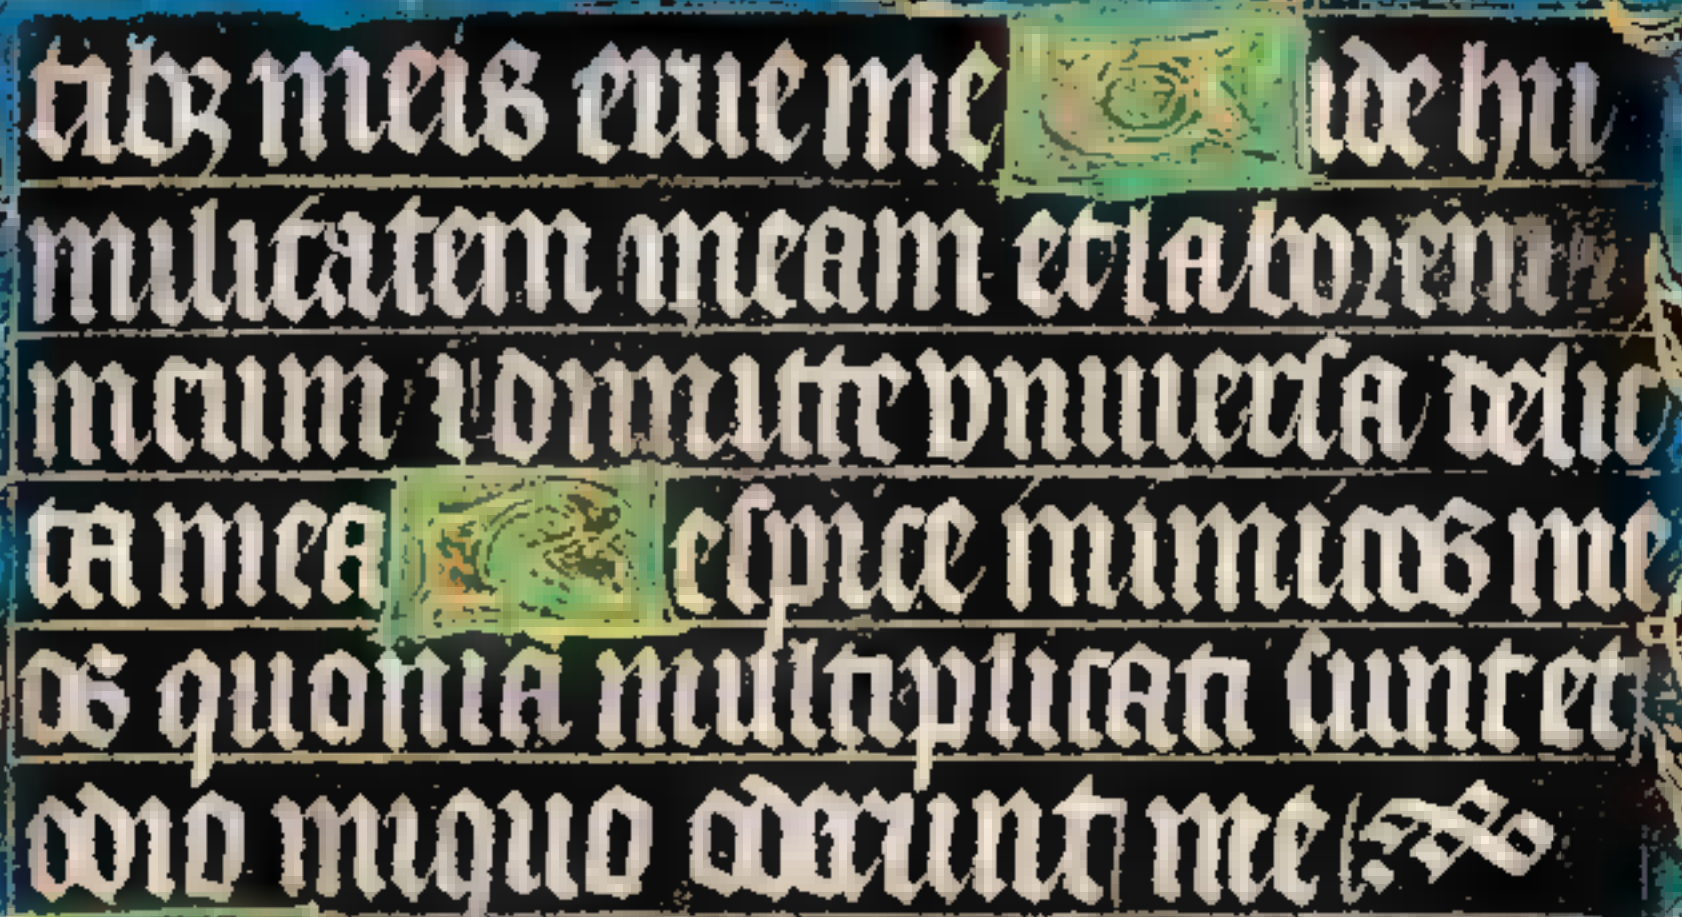 tibꝫ meis erue me Vide hu
militatem meam et laborem
meum ⁊ dimitte vniuersa delic
ta mea Respice inimicos me
os quonia multiplicati sunt et
odio iniquo oderunt me